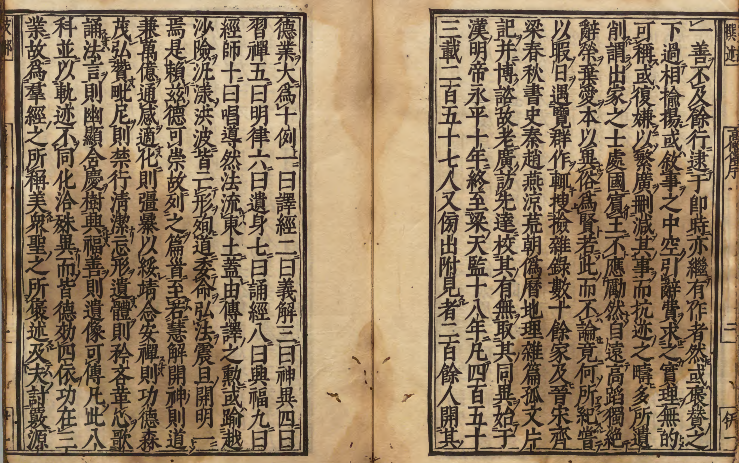 一善不及餘行逮于即時亦繼有作者然或褒贊之
下過相揄揚或敘事之中空引辭費求之實理無的
可稱或復嫌以繁廣刪減其事而抗迹之疇多所遺
削謂出家之士處國賓王不應勵然自遠高蹈獨絕
辭榮棄愛本以異俗爲賢若此而不論竟何所紀嘗
以暇日遇覽群作輒搜撿雜錄數十餘家及晉宋齊
梁春秋書史秦趙燕涼荒朝僞曆地理雜篇孤文片
記并博諮故老廣訪先達校其有無取其同異始于
漢明帝永平十年終至梁天監十八年凡四百五十
三載二百五十七人又傍出附見者二百餘人開其
德業大爲十例一曰譯經二曰義解三曰神異四曰
習禪五曰明律六曰遺身七曰誦經八曰興福九曰
經師十曰唱導然法流東土蓋由傳譯之勳或踰越
沙險泛漾洪波皆亡形殉道委命弘法震旦開明一
焉是賴玆德可崇故列之篇首至若慧解開神則道
兼萬億通感適化則彊暴以綏靖念安禪則功德森
茂弘贊毗尼則禁行清潔忘形遺體則矜吝革心歌
誦法言則幽顯含慶樹興福善則遺像可傳凡此八
科並以軌迹不同化洽殊異而皆德効四依功在三
業故爲羣經之所稱美衆聖之所褒述及夫討覈源